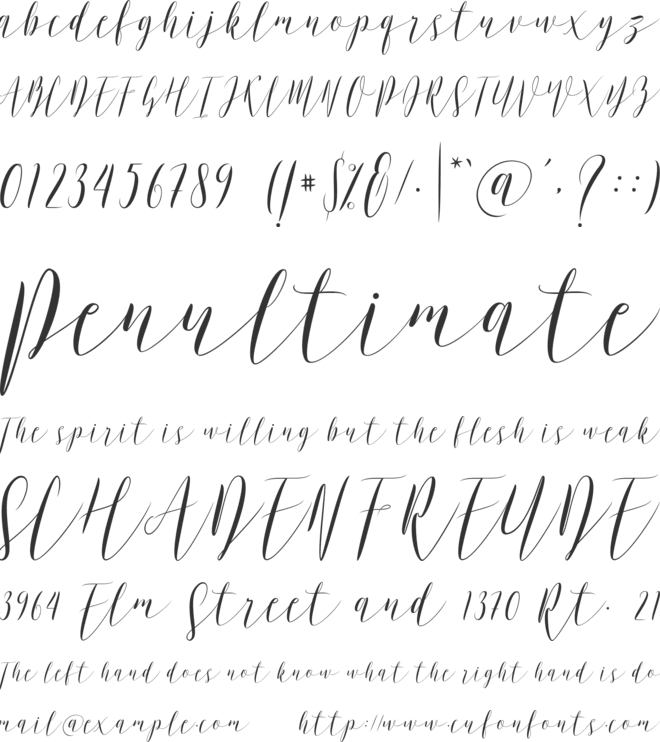 abcdefghijklmnopqrstuvwxyz
ABCDEFGHIJKLMNOPQRSTUVWXYZ
0123456789 (!#$%&/.|*`@´,?:;)
Penultimate
The spirit is willing but the flesh is weak
SCHADENFREUDE
3964 Elm Street and 1370 Rt. 21
The left hand does not know what the right hand is do
mail@example.com http://www.cufonfonts.com